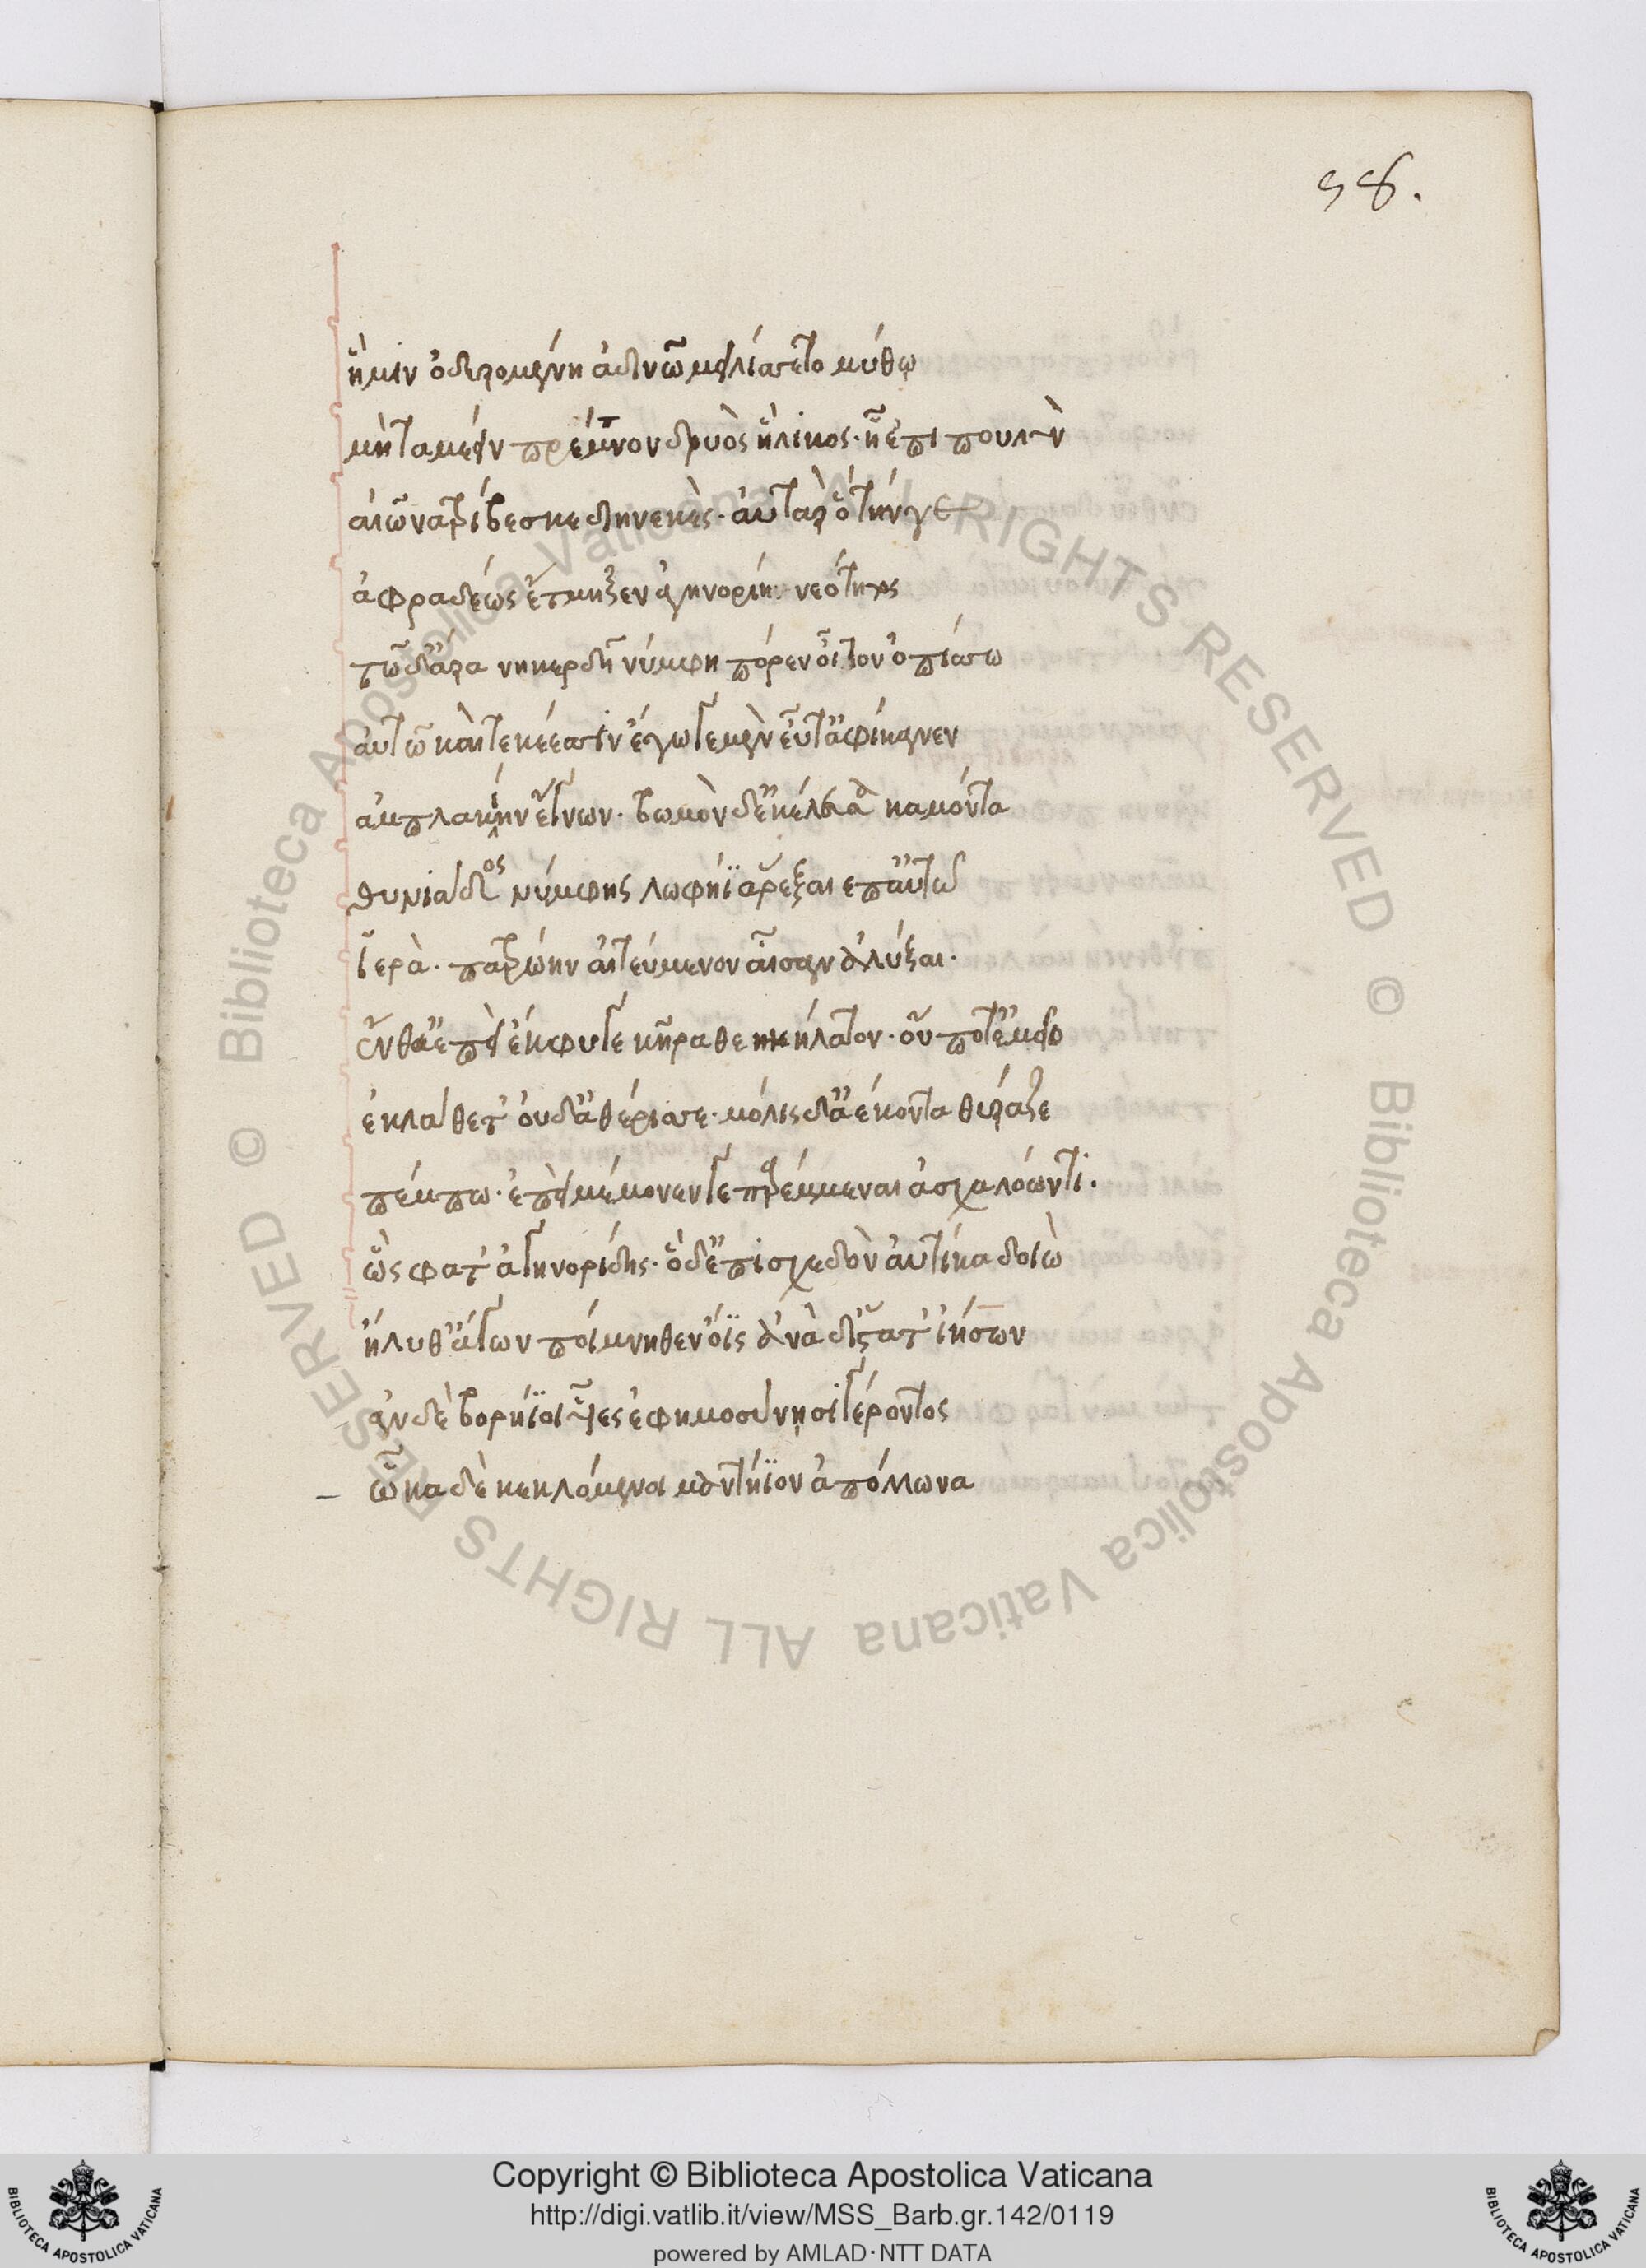 58.
ἥμιν ὀδυρομένη ἀδινῶ μειλίσσετο μύθω
μὴ ταμέειν πρέμνον δρυὸς ἥλικος· ἧ ἐπι πουλὺν
αἰῶνα τρίβεσκε διηνεκὲς· ἀυτὰρ ὁ τήνγε
ἀφραδέως ἔτμηξεν ἀγηνορίη νεότητος
τῶ δἄρα νηκερδῆ νύμφη πόρεν οἶτον ὀπίσσω
ἀυτῶ καὶ τεκέεσσιν ἔγωγε μὲν εὖτἀφίκανεν
ἀμπλακίην ἔγνων· βωμὸν δἐκέλευσα καμόντα
θυνιάδος νύμφης λωφήϊα ῥέξαι ἐπἀυτῶ
ἱερὰ· πατρώην ἀιτεύμενον αἶσαν ἀλύξαι·
ἔνθἀεπεὶ ἔκφυγε κῆρα θεήλατον· οὔποτἐμεῖο
ἐκλάθετ' ὀυδἀθέρισσε· μόλις δἀέκοντα θύραζε
πέμπω· ἐπεὶ μέμονέν γε παρέμμεναι ἀσχαλόωντι.
ὣς φατ' ἀγηνορίδης· ὁ δἐπισχεδὸν ἀυτίκα δοιὼ
ἤλυθἄγων ποίμνηθεν ὄϊς ἀνὰ δἵστατ' ἰήσων
ἂν δὲ βορήϊοι υἷες ἐφημοσύνῃσι γέροντος
ὦκα δὲ κεκλόμενοι μαντήϊον ἀπόλλωνα
Copyright © Biblioteca Apostolica Vaticana
http://digi.vatlib.it/view/MSS_Barb.gr.142/0119
powered by AMLAD·NTT DATA
BIBLIOTECA APOSTOLICA VATICANA
BIBLIOTECA APOSTOLICA VATICANA
© Biblioteca Apostolica Vaticana ALL RIGHTS RESERVED © Biblioteca Apostolica Vaticana ALL RIGHTS RESERVED